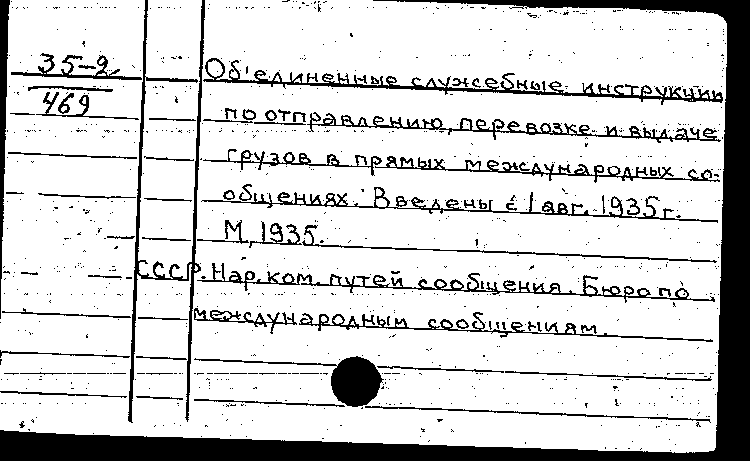 35-2
469
Об'единенные служебные инструкции
по отправлению, перевозке и выдаче
грузов в прямых международных со-
общениях. Введены с 1 авг. 1935г.
М., 1935.
СССР. Нар. ком. путей сообщения. Бюро по
международным сообщениям.